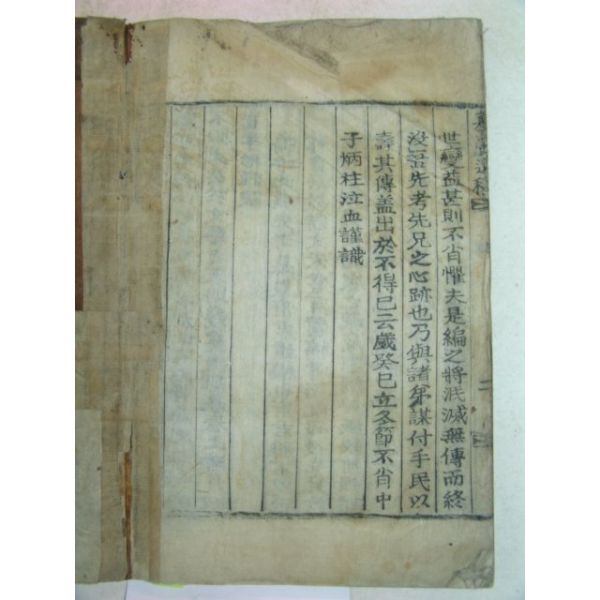 世變益甚則不肖懼夫是編之將泯滅無傳而終
沒吾先考先兄之心跡也乃與諸弟謀付手民以
壽其傳蓋出於不得已云歲癸巳立冬節不肖中
子炳柱泣血謹識